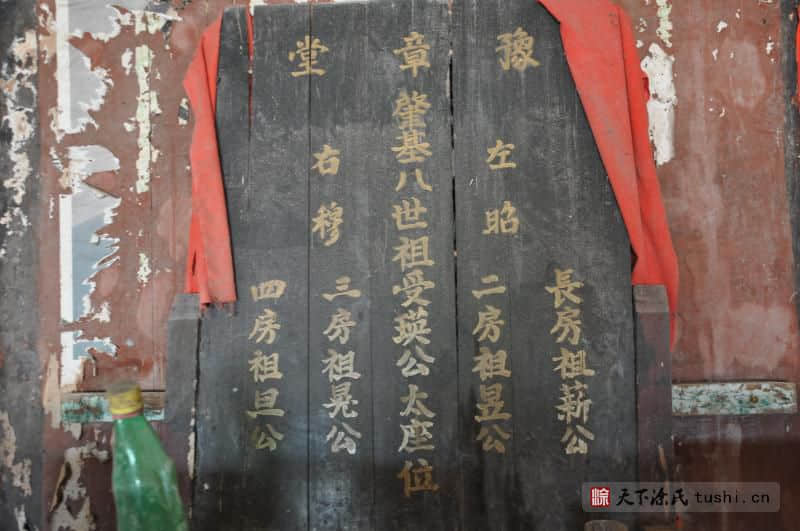 豫章堂
肇基八世祖受瑛公太座位
左昭
右穆
長房祖薪公
二房祖昱公
三房祖晃公
四房祖旦公
涂 天下涂氏 tushi.cn